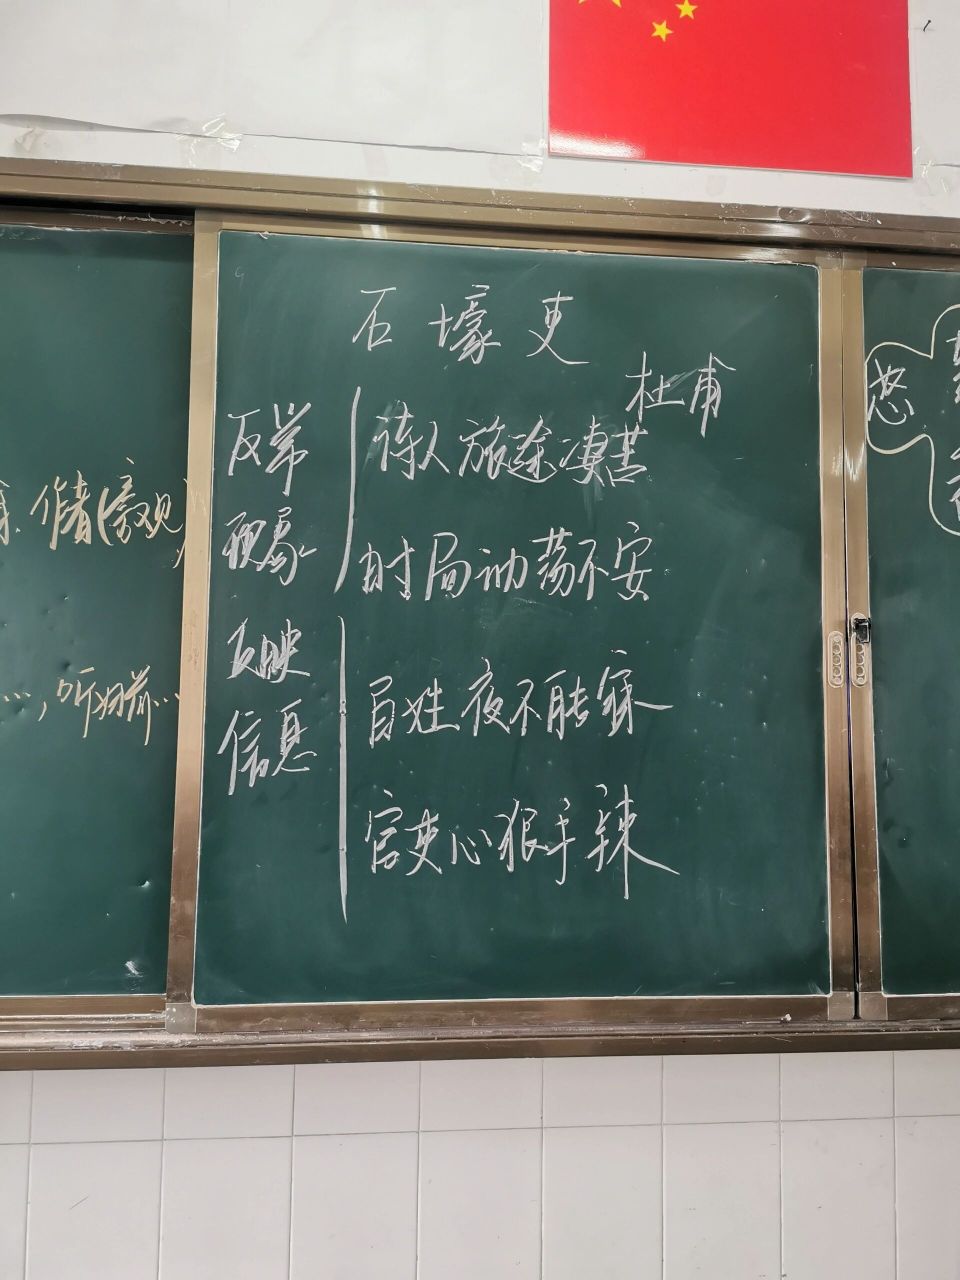 石壕吏
杜甫
反常
现象
诗人旅途凄苦
时局动荡不安
反映
信息
百姓夜不能寐
官吏心狠手辣
作者(旁观)
怒